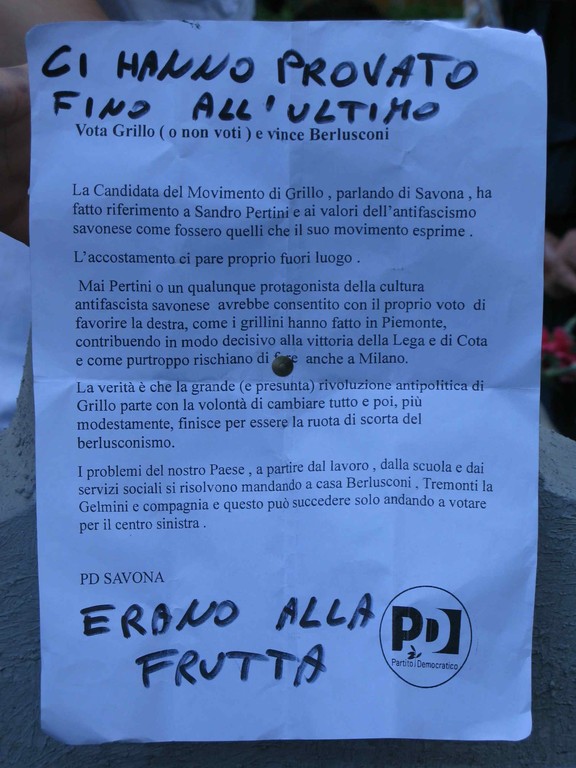 CI HANNO PROVATO
FINO ALL'ULTIMO
Vota Grillo ( o non voti ) e vince Berlusconi
La Candidata del Movimento di Grillo , parlando di Savona , ha
fatto riferimento a Sandro Pertini e ai valori dell'antifascismo
savonese come fossero quelli che il suo movimento esprime .
L'accostamento ci pare proprio fuori luogo .
Mai Pertini o un qualunque protagonista della cultura
antifascista savonese avrebbe consentito con il proprio voto di
favorire la destra, come i grillini hanno fatto in Piemonte,
contribuendo in modo decisivo alla vittoria della Lega e di Cota
e come purtroppo rischiano di fare anche a Milano.
La verità è che la grande (e presunta) rivoluzione antipolitica di
Grillo parte con la volontà di cambiare tutto e poi, più
modestamente, finisce per essere la ruota di scorta del
berlusconismo.
I problemi del nostro Paese , a partire dal lavoro , dalla scuola e dai
servizi sociali si risolvono mandando a casa Berlusconi , Tremonti la
Gelmini e compagnia e questo può succedere solo andando a votare
per il centro sinistra .
PD SAVONA
ERANO ALLA
FRUTTA
PD
Partito Democratico